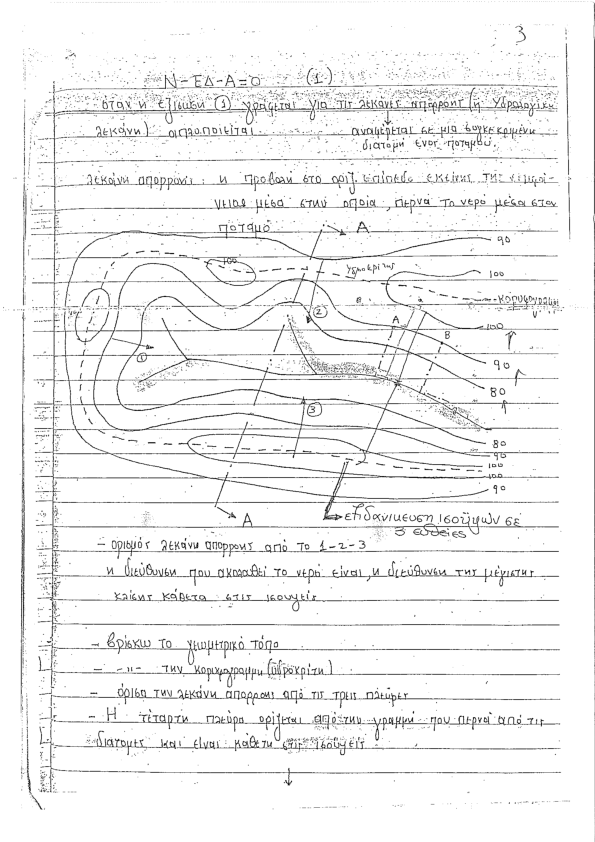 3
N-ΕΔ-Α=0 (1)
όταν η εξίσωση (1) γράφεται για τις λεκάνες απορροής (ή υδρολογική
λεκάνη) απλοποιείται. αναφέρεται σε μια συγκεκριμένη
διατομή ενός ποταμού.
λεκάνη απορροής: η προβολή στο οριζ. επίπεδο εκείνης της
μέσα στην οποία, περνά το νερό μέσα στον
ποταμό
A
90
100
υδροκρίτης
100
κορυφογραμμή
2
A
100
B
1
90
80
3
80
90
100
100
90
A
εξιδανίκευση ισοϋψών σε
3 ευθείες
- ορισμός λεκάνη απορροής από το 1-2-3
η διεύθυνση που ακολαθεί το νερό είναι, η διεύθυνση της μέγιστης
κλίσης κάθετα στις ισουψείς
- βρίσκω το γεωμετρικό τόπο
- -"- την κορυφογραμμή (υδροκρίτη)
- όρισα την λεκάνη απορροής από τις τρεις πλευρες
- Η τέταρτη πλευρά ορίζεται από την γραμμή που περνά από τις
διατομές και είναι κάθετη στις ισουψείς